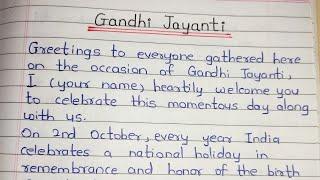 Gandhi Jayanti
Greetings to everyone gathered here
on the occasion of Gandhi Jayanti,
I (your name) heartily welcome you
to celebrate this momentous day along
with us.
On 2nd October, every year India
celebrates a national holiday in
remembrance and honor of the birth